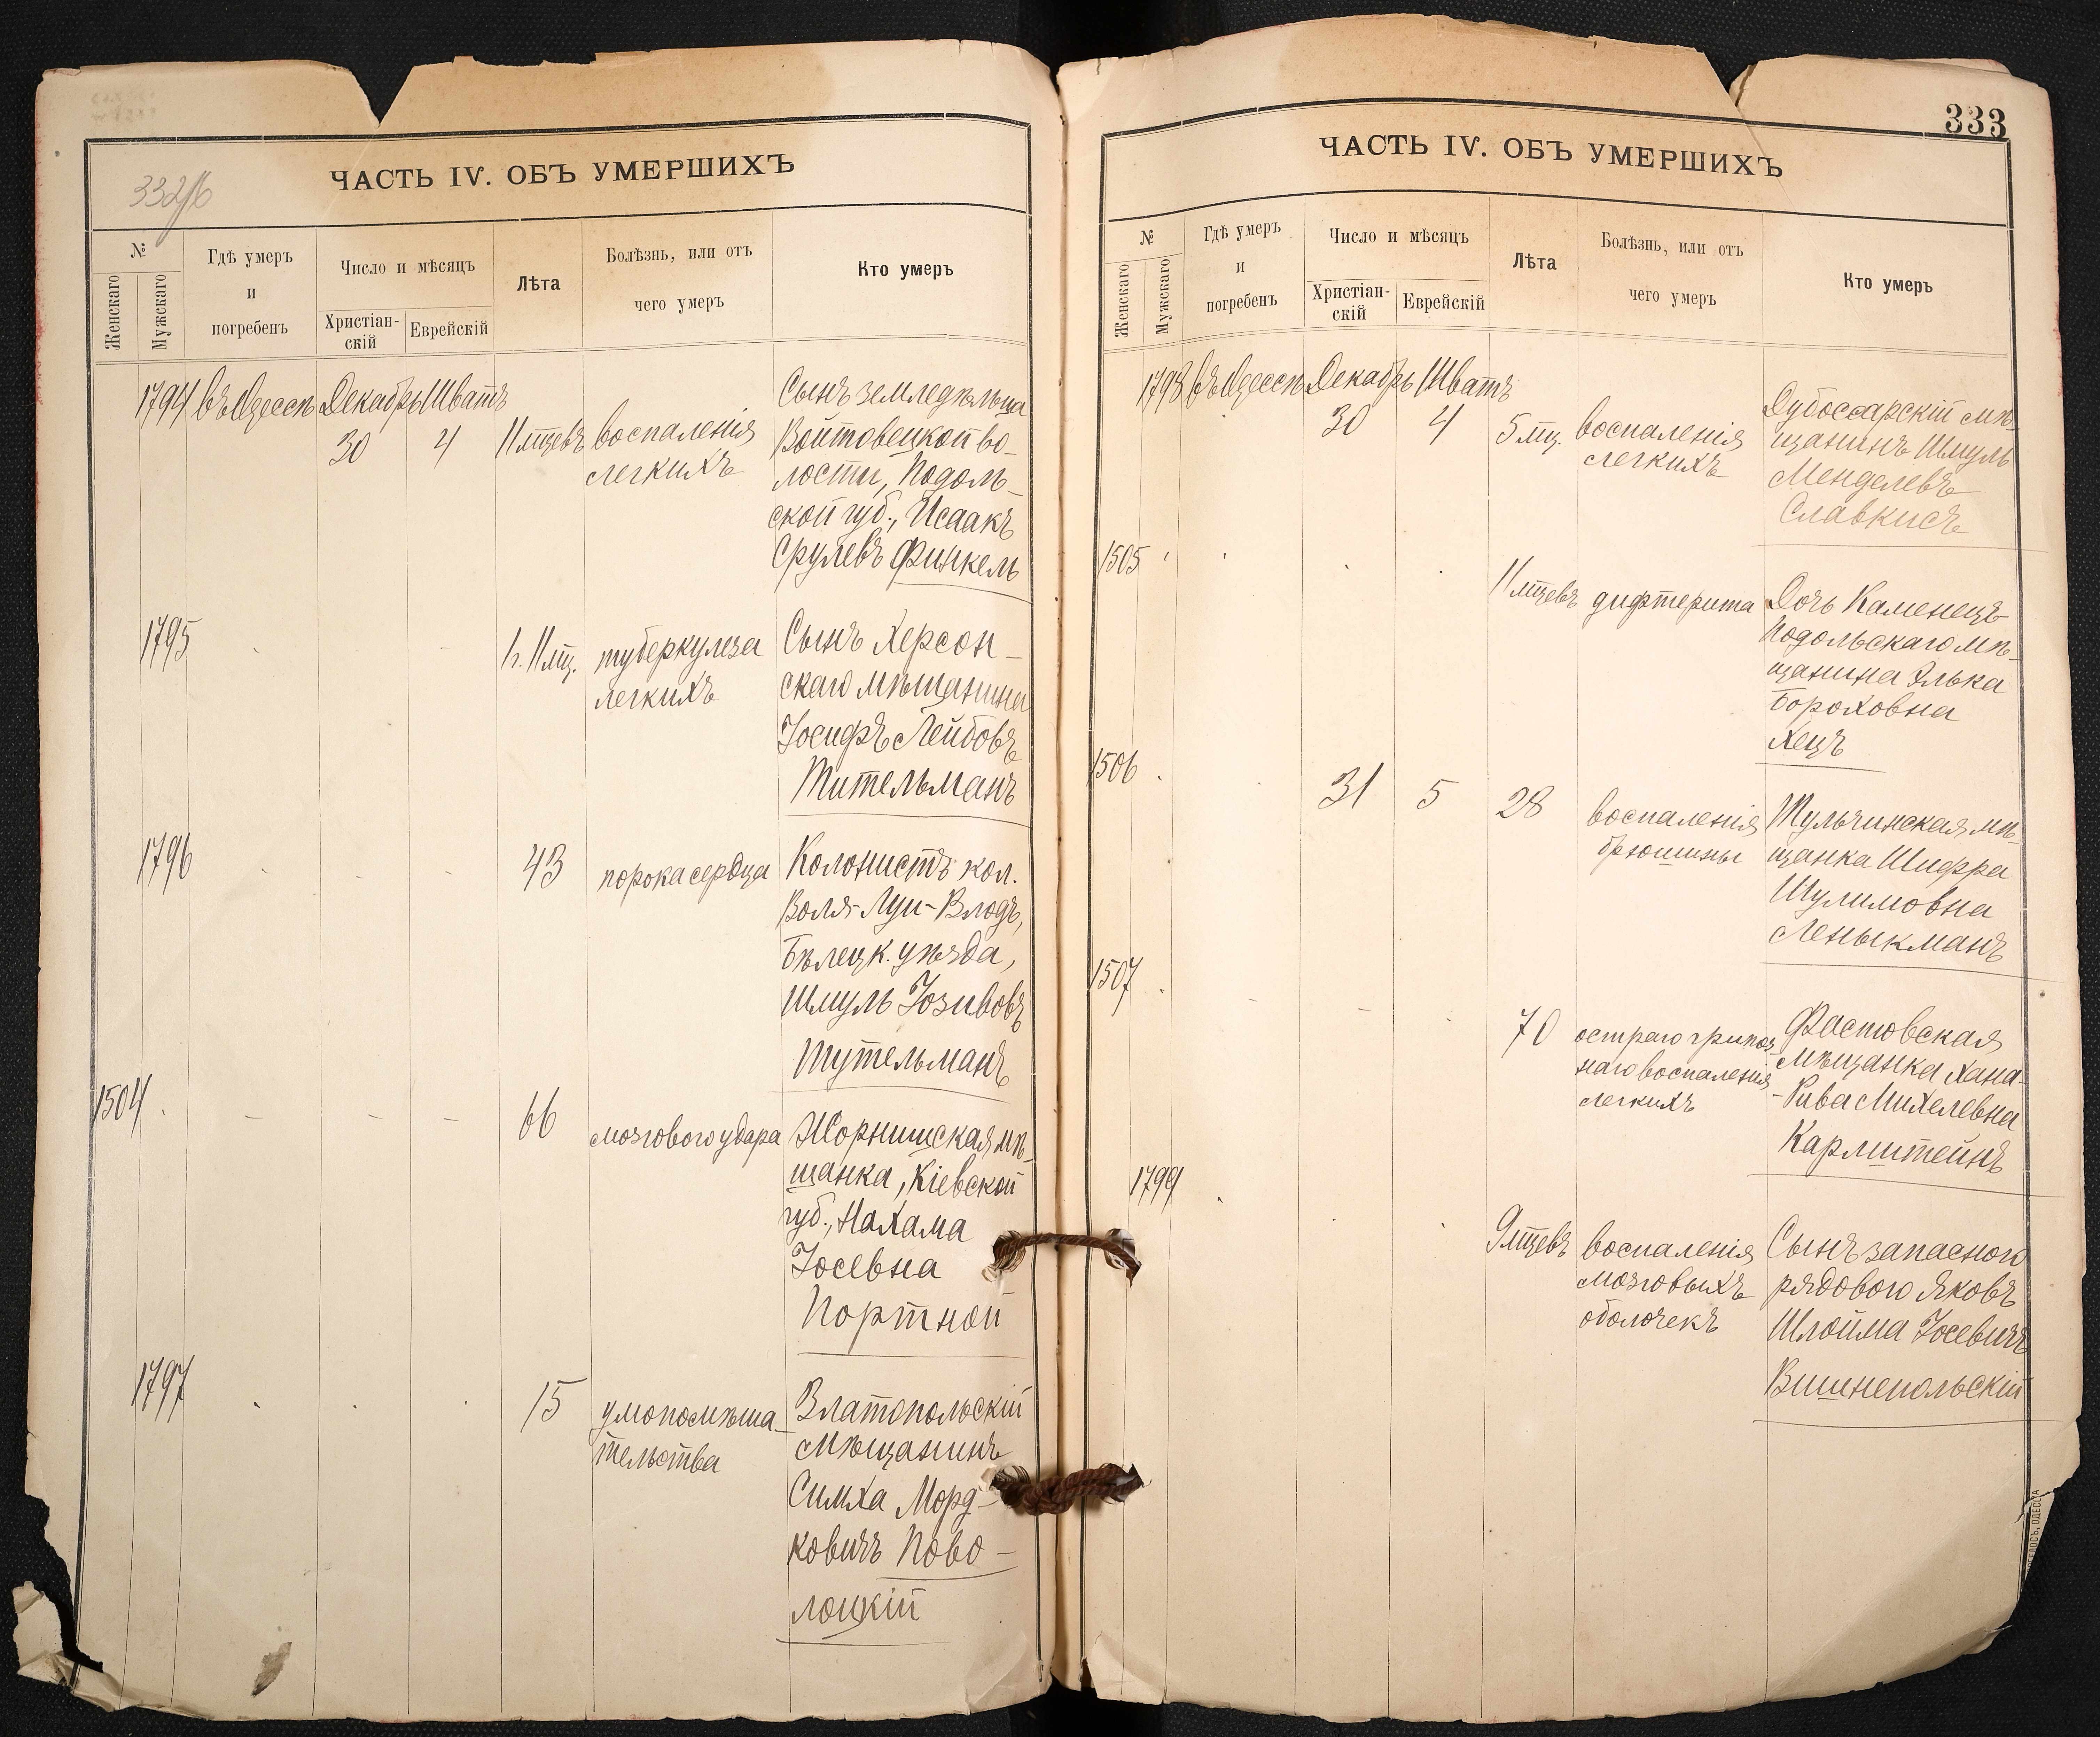 332об
ЧАСТЬ IV. ОБЪ УМЕРШИХЪ
№
Женскаго
Мужскаго
Гдѣ умеръ
и
погребенъ
Число и мѣсяцъ
Христіан-
скій
Еврейскій
Лѣта
Болѣзнь, или отъ
чего умеръ
Кто умеръ
1794 въ Одессѣ Декабрь Шватъ
30 4 11 мцевъ воспаленія
легкихъ
Сынъ земледѣльца
Войтовецкой во-
лости, Подоль-
ской губ., Исаакъ
Срулевъ Финкель
1795
1 г. 11 мц. туберкулеза
легкихъ
Сынъ Херсон-
скаго мѣщанина
Іосифъ Лейбовъ
Тительманъ
1796
43 порока сердца
Колонистъ кол.
Воля-Луи-Влодъ,
Бѣлецк. уѣзда,
Шмуль Іозивовъ
Тутельманъ
1504
66 мозгового удара
Жорнищская мѣ-
щанка, Кіевской
губ., Нахама
Іосевна
Портной
1797
15 умопомѣша-
тельства
Златопольскій
мѣщанинъ
Симха Морд-
ковичъ Пово-
лоцкій
333
ЧАСТЬ IV. ОБЪ УМЕРШИХЪ
№
Женскаго
Мужскаго
Гдѣ умеръ
и
погребенъ
Число и мѣсяцъ
Христіан-
скій
Еврейскій
Лѣта
Болѣзнь, или отъ
чего умеръ
Кто умеръ
1798 въ Одессѣ Декабрь Шватъ
30 4 5 мц. воспаленія
легкихъ
Дубоссарскій мѣ-
щанинъ Шмуль
Менделевъ
Славкисъ
1505
11 мцевъ дифтерита
Дочь Каменецъ-
Подольскаго мѣ-
щанина Элька
Бороховна
Хецъ
1506
31 5 28 воспаленія
брюшины
Тульчинская мѣ-
щанка Шифра
Шулимовна
Леныкманъ
1507
70 остраго крупоз-
наго воспаленія
легкихъ
Фастовская
мѣщанка Хана-
-Рива Михелевна
Карлштейнъ
1799
9 мцевъ воспаленія
мозговыхъ
оболочекъ
Сынъ запасного
рядового Яковъ
Шлойма Іосевичъ
Вишнепольскій
ОДЕССА